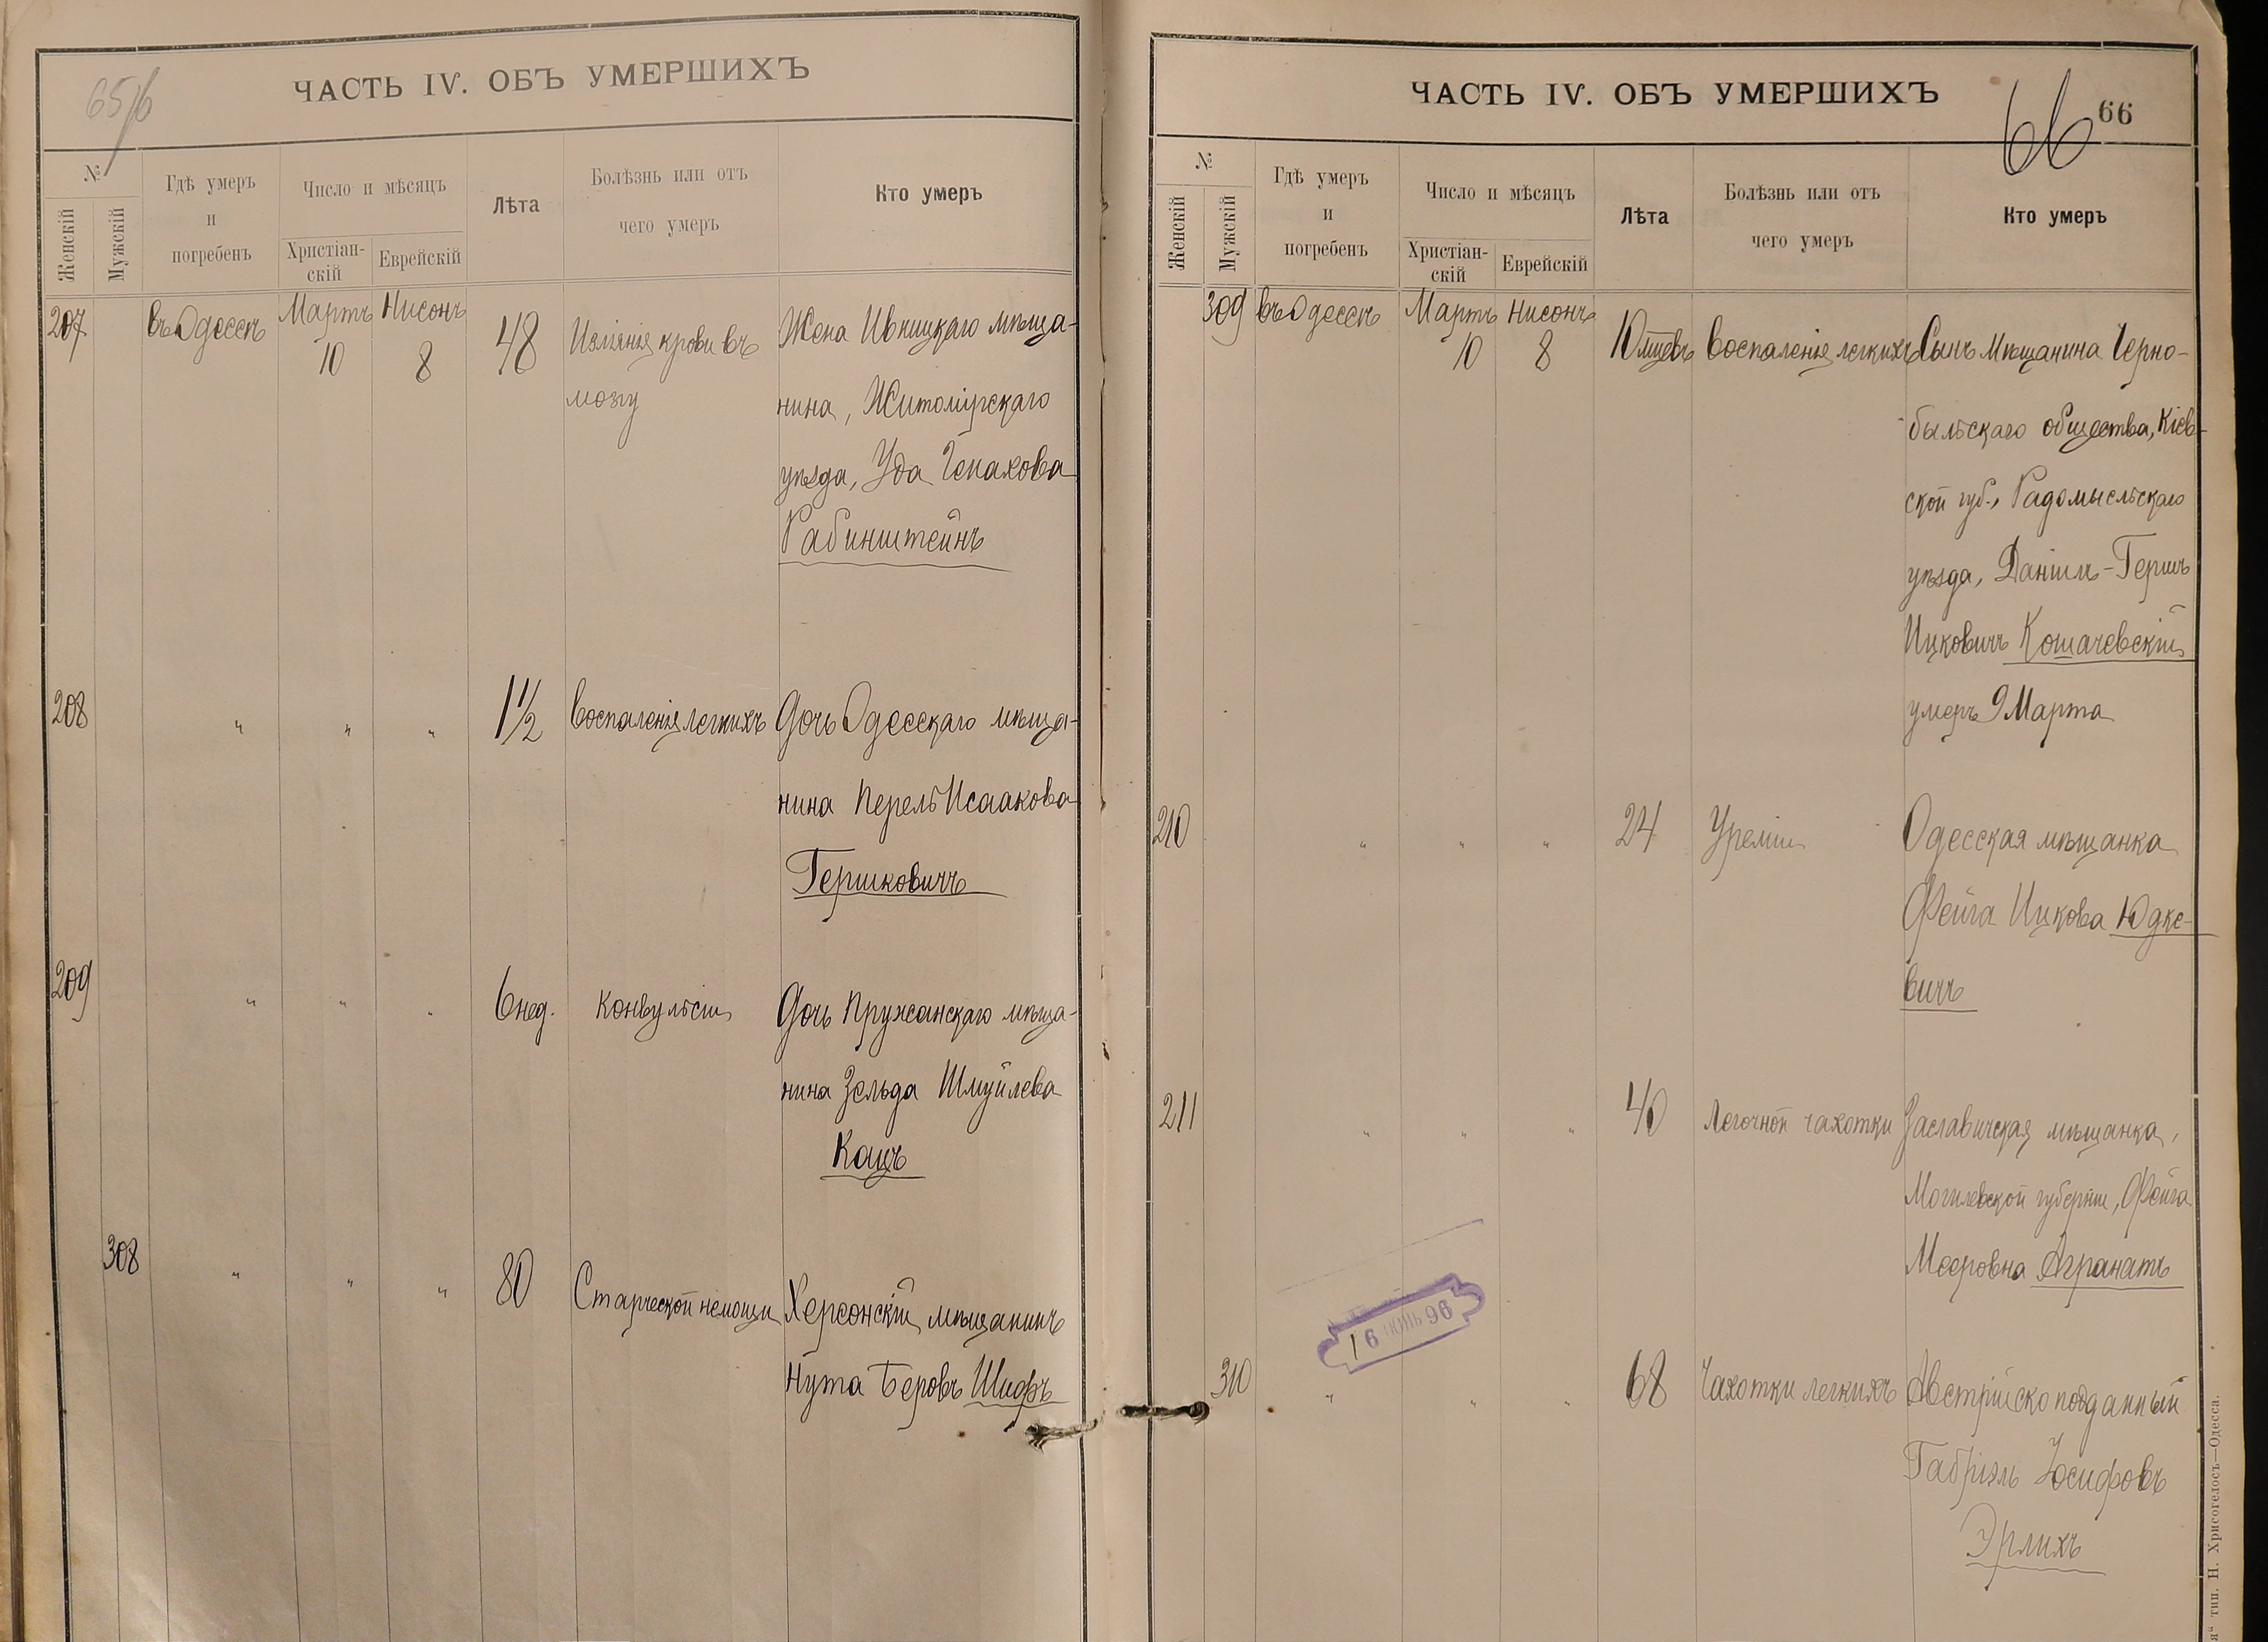 65/б
ЧАСТЬ IV. ОБЪ УМЕРШИХЪ
№
Женскій
Мужскій
Гдѣ умеръ
и
погребенъ
Число и мѣсяцъ
Христіан-
скій
Еврейскій
Лѣта
Болѣзнь или отъ
чего умеръ
Кто умеръ
207 въ Одессѣ Мартъ 10 Нисонъ 8 48 Изліянія крови въ Жена Ивницкаго мѣща-
мозгу нина, Житомірскаго
уѣзда, Уда Генахова
Рабинштейнъ
208 " " " 1½ Воспаленія легкихъ Дочь Одесскаго мѣща-
нина Перель Исаакова
Гершковичъ
209 " " " 6 нед. Конвульсіи Дочь Пружанскаго мѣща-
нина Зельда Шмуйлева
Кацъ
308 " " " 80 Старческой немощи Херсонскій мѣщанинъ
Нута Беровъ Шифъ
ЧАСТЬ IV. ОБЪ УМЕРШИХЪ
66 66
№
Женскій
Мужскій
Гдѣ умеръ
и
погребенъ
Число и мѣсяцъ
Христіан-
скій
Еврейскій
Лѣта
Болѣзнь или отъ
чего умеръ
Кто умеръ
309 въ Одессѣ Мартъ 10 Нисонъ 8 10 мцевъ Воспаленія легкихъ Сынъ Мѣщанина Черно-
быльскаго общества, Кіев-
ской губ., Радомысльскаго
уѣзда, Даніилъ-Гершъ
Ицковичъ Кошачевскій
умеръ 9 Марта
210 " " " 24 Уреміи Одесская мѣщанка
Фейга Ицкова Юдке-
вичъ
211 " " " 40 Легочной чахотки Заславичская мѣщанка,
Могилевской губерніи, Фейга
Мееровна Агранатъ
16 ІЮНЬ 96
310 " " " 68 Чахотки легкихъ Австрійско подданный
Габріэль Іосифовъ
Эрлихъ
тип. Н. Хрисогелосъ—Одесса.